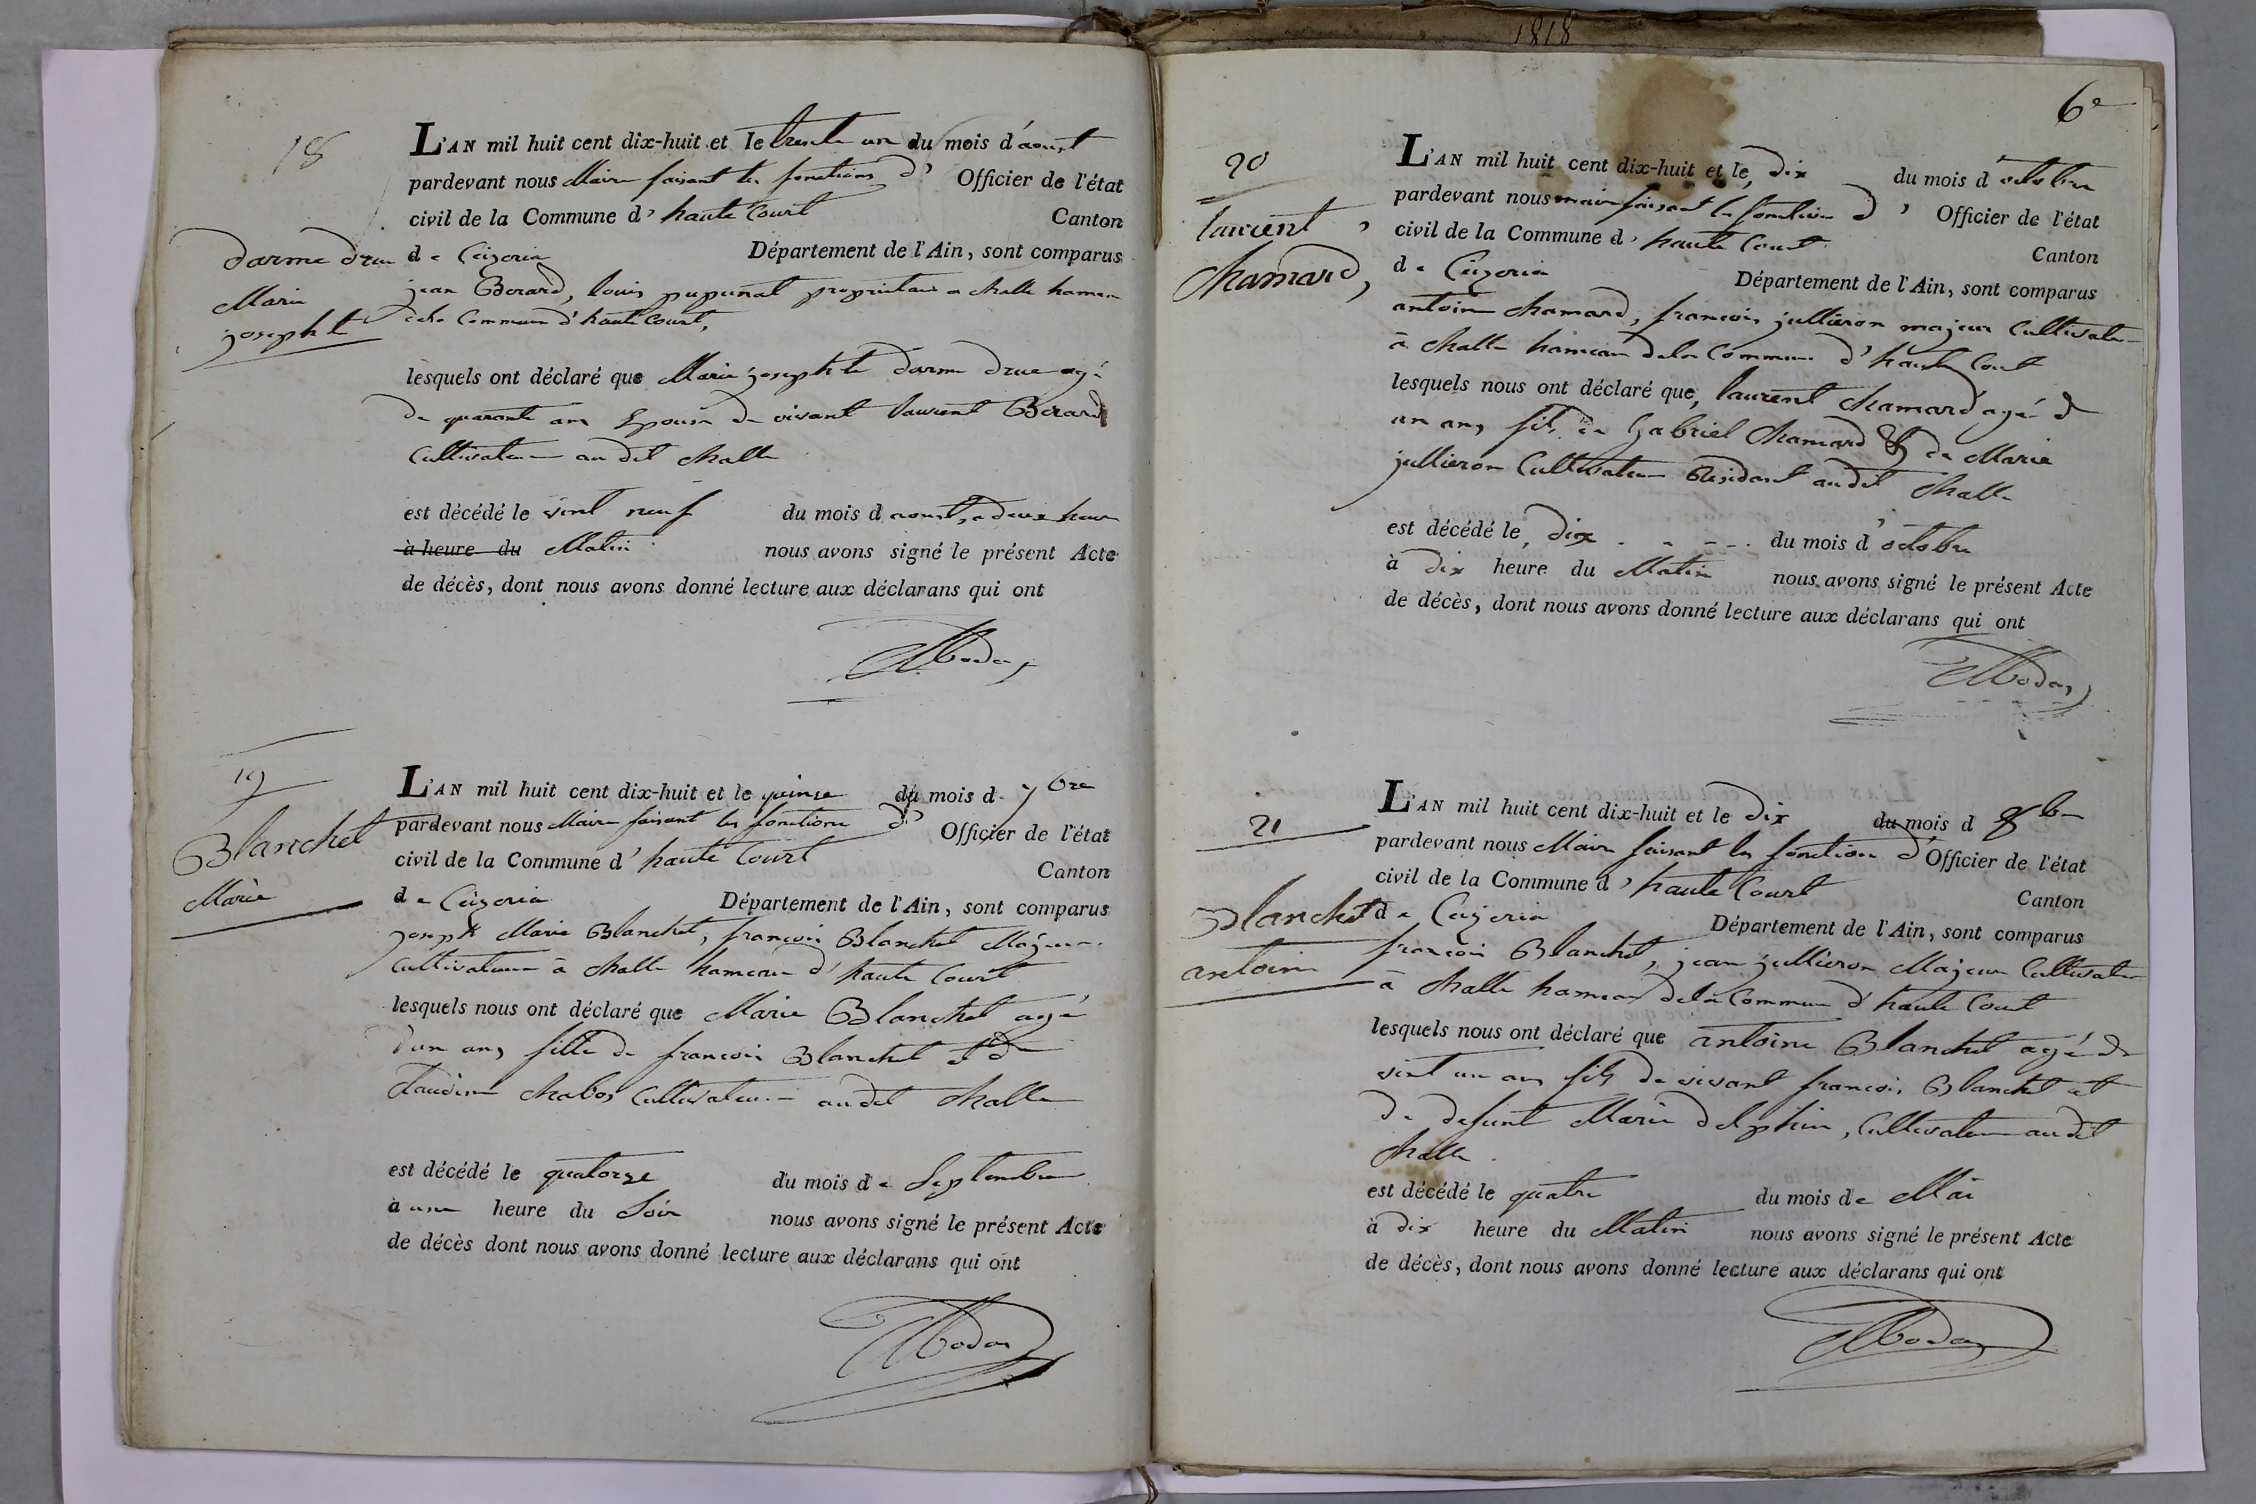 18
darme drue
Marie
josephte
L'AN mil huit cent dix-huit et le trente un du mois d'aoust
pardevant nous Maire faisant les fonctions d' Officier de l'état
civil de la Commune d'haute Court Canton
de Ceizeria Département de l'Ain, sont comparus
jean Berard, louis pupunat proprietaire a challe hameau
dela Commune d'haute Court,
lesquels ont déclaré que Marie josephte darme drue agé
de quarante ans Epouse de vivant laurent Berard
Cultivateur au dit challe
est décédé le vint neuf du mois d aoust, a deux heure
à heure du Matin nous avons signé le présent Acte
de décès, dont nous avons donné lecture aux déclarans qui ont
19
Blanchet
Marie
L'AN mil huit cent dix-huit et le quinse du mois d 7bre
pardevant nous Maire faisant les fonctions d' Officier de l'état
civil de la Commune d'haute Court Canton
de Ceizeria Département de l'Ain, sont comparus
joseph Marie Blanchet, francois Blanchet Majeur
Cultivateur à challe hameau d'haute Court
lesquels nous ont déclaré que Marie Blanchet agé
d'un ans fille de francois Blanchet et de
Claudine chabos Cultivateur audit challe
est décédé le quatorze du mois de Septembre
à une heure du Soir nous avons signé le présent Acte
de décès dont nous avons donné lecture aux déclarans qui ont
1818
6e
20
laurent
chamard,
L'AN mil huit cent dix-huit et le, dix du mois d'octobre
pardevant nous maire faisant les fonctions d' Officier de l'état
civil de la Commune d'haute Court Canton
de Ceizeria Département de l'Ain, sont comparus
antoine chamard, francois jullieron majeur Cultivateur
à challe hameau dela Commune d'haute Court
lesquels nous ont déclaré que, laurent chamard agé d
un ans fils de Gabriel chamard & de Marie
jullieron Cultivateur Residant audit challe
est décédé le, dix du mois d'octobre
à dix heure du Matin nous avons signé le présent Acte
de décès, dont nous avons donné lecture aux déclarans qui ont
21
Blanchet
antoine
L'AN mil huit cent dix-huit et le dix du mois d 8bre
pardevant nous Maire faisant les fonctions d'Officier de l'état
civil de la Commune d'haute Court Canton
de Ceizeria Département de l'Ain, sont comparus
francois Blanchet, jean jullieron Majeur Cultivateur
à challe hameau dela Commune d'haute Court
lesquels nous ont déclaré que antoine Blanchet agé de
vint un ans fils de vivant francois Blanchet et
de defunt Marie delphin, Cultivateur audit
challe
est décédé le quatre du mois de Mai
à dix heure du Matin nous avons signé le présent Acte
de décès, dont nous avons donné lecture aux déclarans qui ont